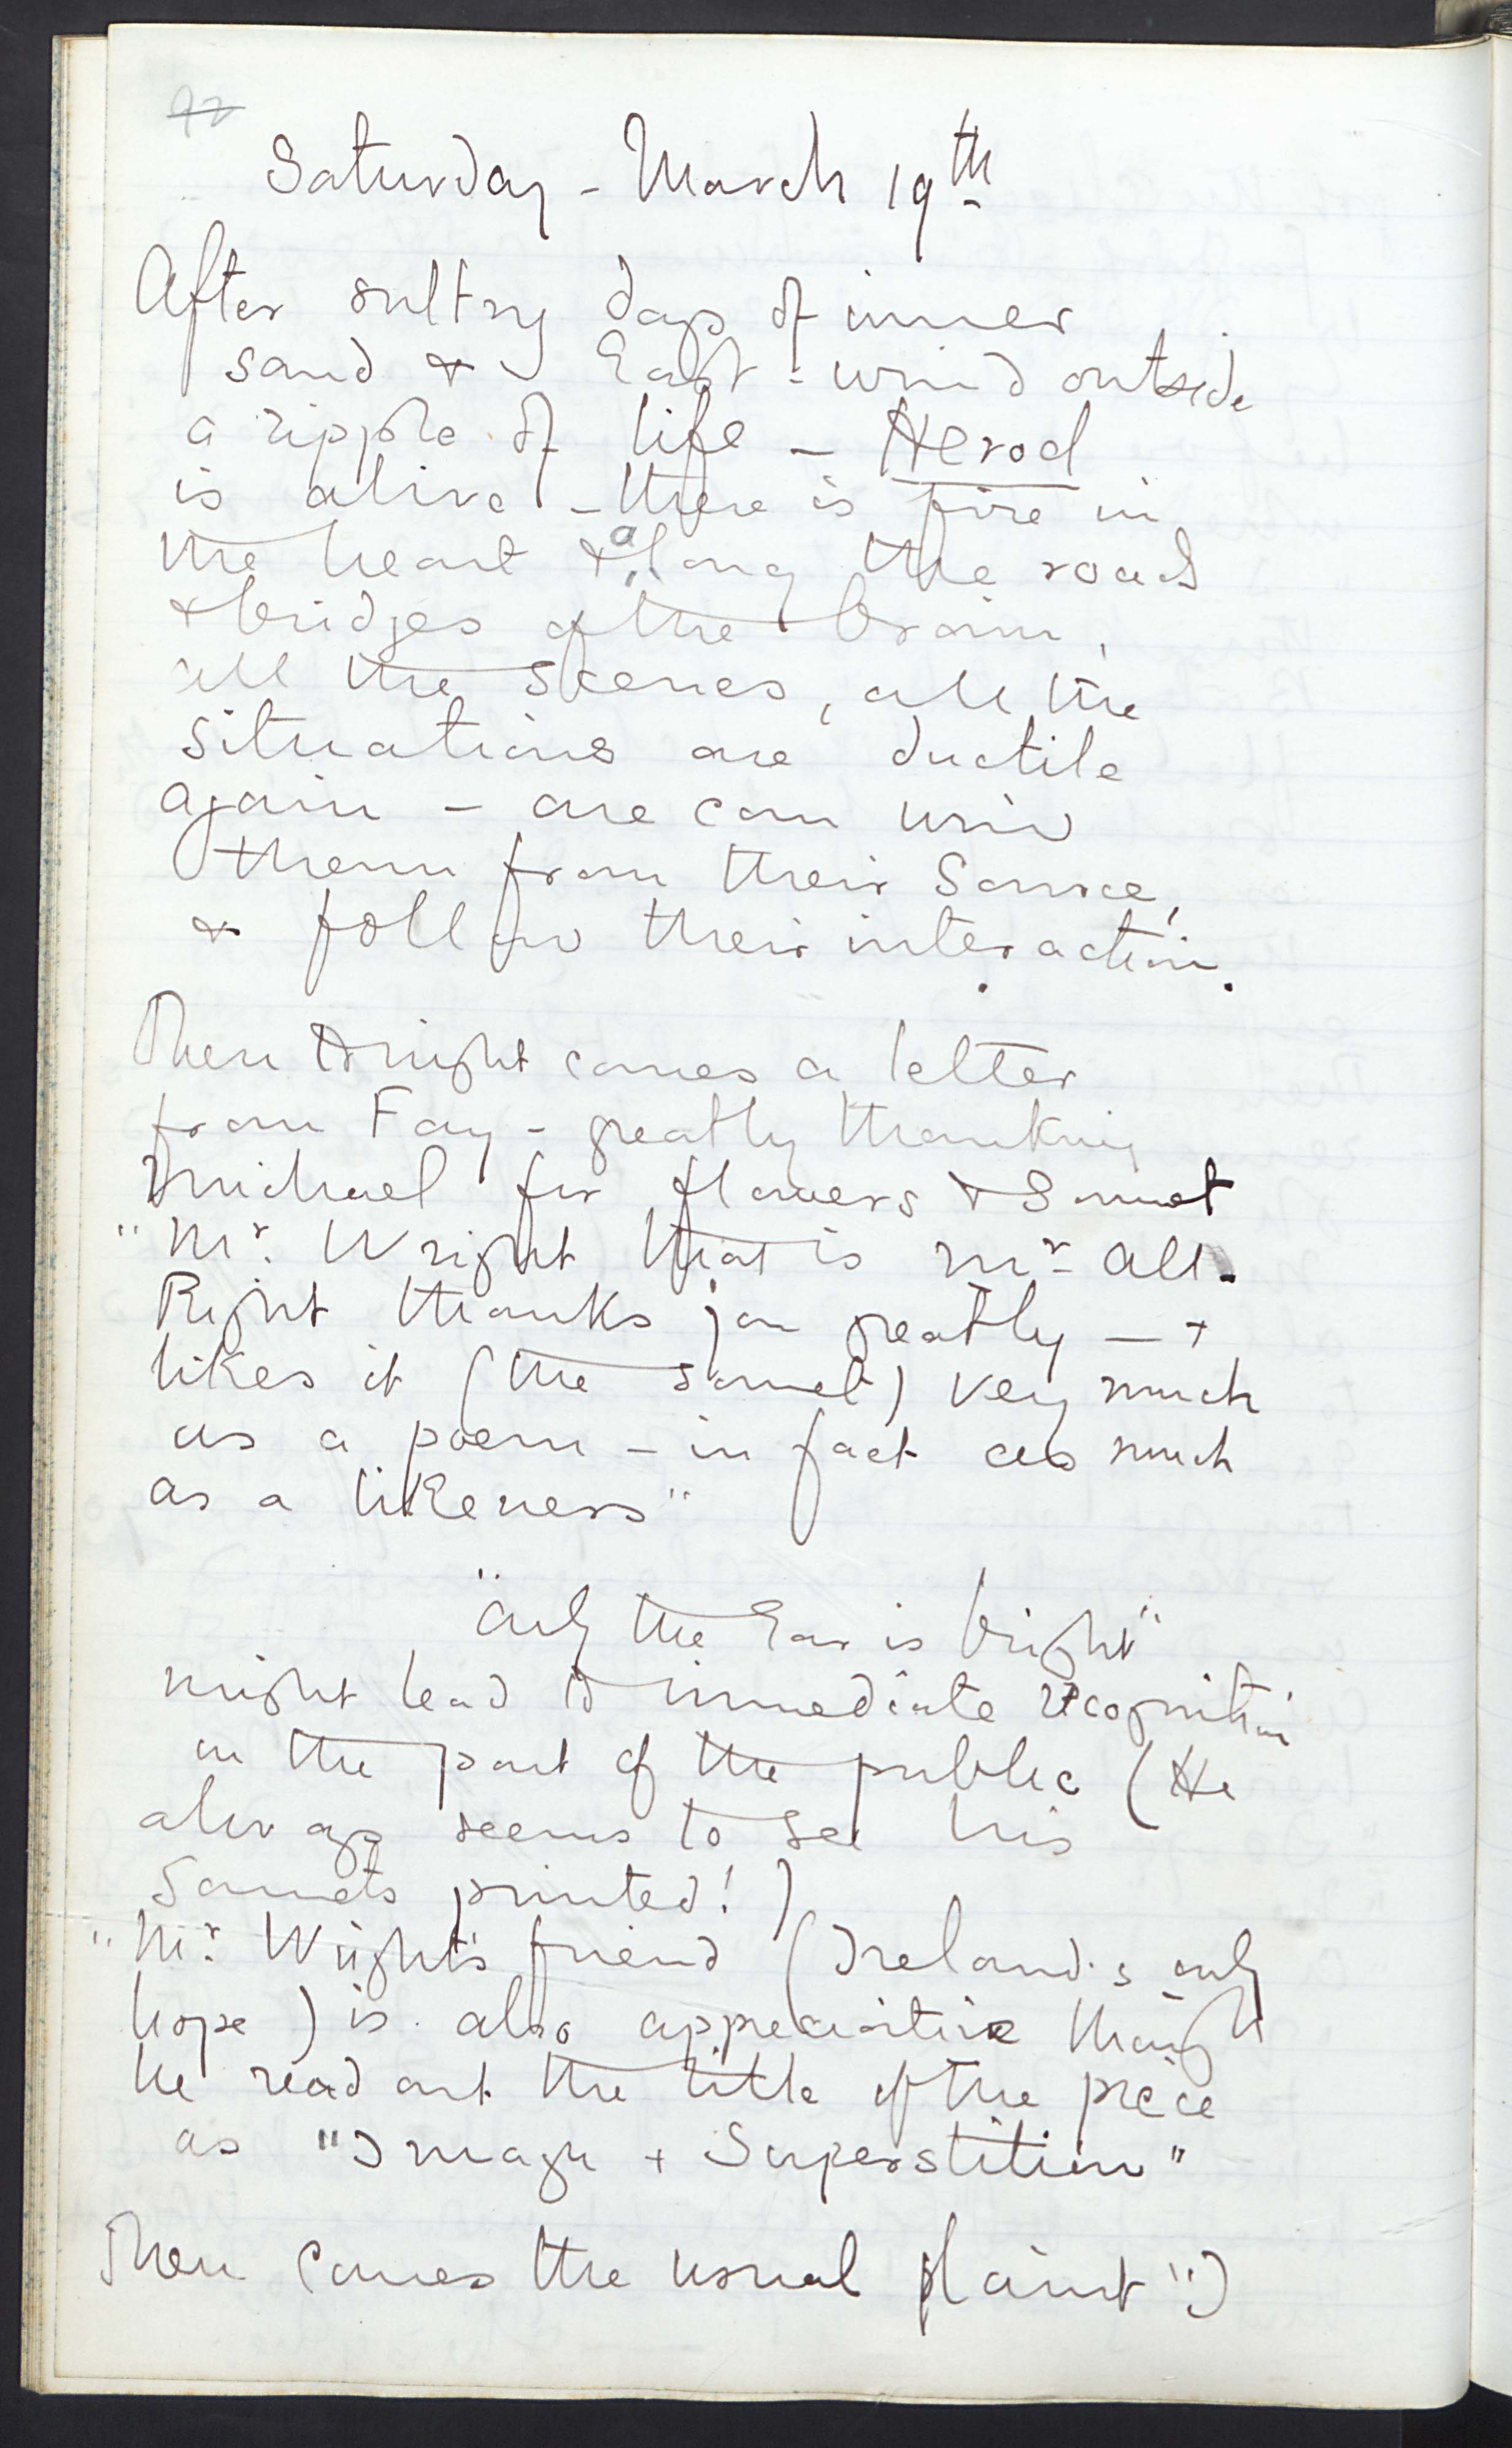 92
Saturday - March 19th
After sultry days of inner
sand & East-wind outside
a ripple of life - Herod
is alive - there is fire in
the heart & along the roads
& bridges of the brain,
all the scenes, all the
situations are ductile
again - one can win
them from their Source,
& follow their interaction.
Then tonight comes a letter
from Fay - greatly thanking
Michael for flowers & Sonnet
"Mr. Wright that is Mr All-
Right thanks you greatly - +
likes it (the sonnet) very much
as a poem - in fact as much
as a likeness"
"Only the Ear is bright"
might lead to immediate recognition
on the part of the public (He
always seems to see his
Sonnets printed!)
"Mr. Wright's friend (Ireland's only
hope) is also appreciative though
he read out the title of the piece
as "Image + Superstition"
Then comes the usual plaint "I